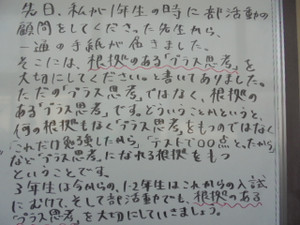 先日、私が1年生の時に部活動の
顧問をしてくださった先生から、
一通の手紙が届きました。
そこには、根拠のある「プラス思考」を
大切にしてください。と書いてありました。
ただの「プラス思考」ではなく、根拠の
ある「プラス思考」です。どういうことかというと、
何の根拠もなく「プラス思考」をもつのではなく
「これだけ勉強したから」「テストで〇〇点とったから」
など「プラス思考」になれる根拠をもつ
ということです。
3年生は今からの、1・2年生はこれからの入試
にむけて、そして部活動でも、根拠のある
「プラス思考」を大切にしていきましょう。